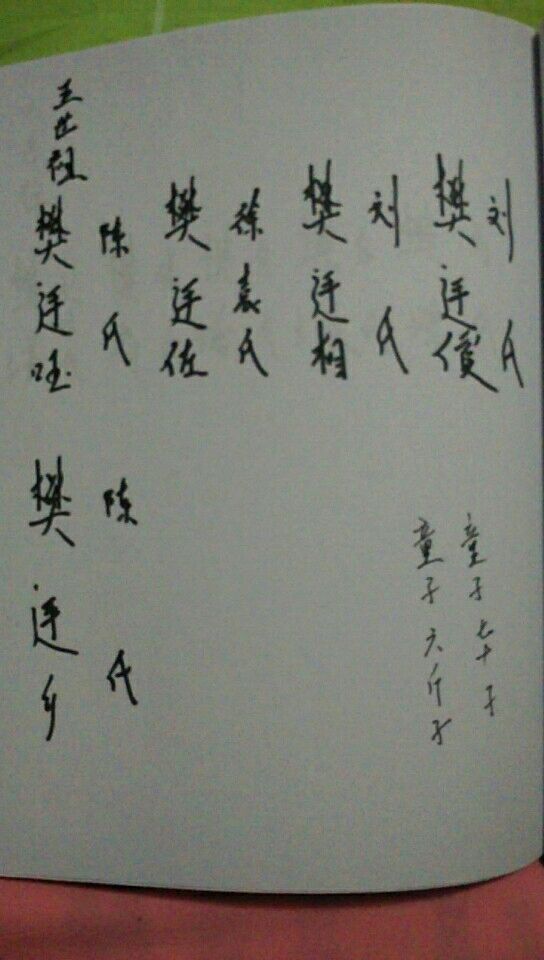 五世祖
樊廷
陈氏
樊廷佐
徐袁氏
樊廷相
刘氏
樊廷
刘氏
樊廷乡
陈氏
童子六斤子
童子七十子